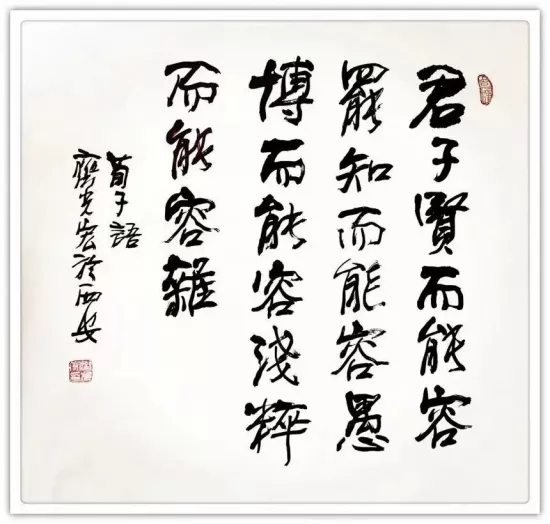 君子賢而能容
罷知而能容愚
博而能容淺粹
而能容雜
荀子語
齊光宏於西安